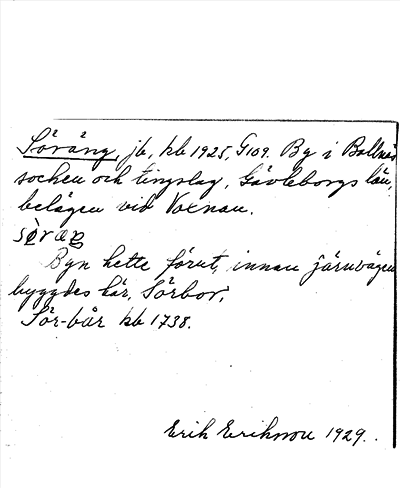 Söräng, jb, kb 1925, G109. By i Bollnäs
socken och tingslag, Gävleborgs län,
belägen vid Voxnan.
Byn hette förut, innan järnvägen
byggdes här, Sörbor,
Sör-bår kb 1738.
Erik Eriksson 1929.